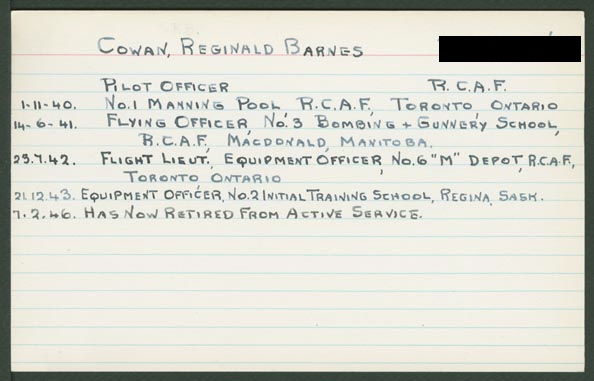 COWAN, REGINALD BARNES
PILOT OFFICER R.C.A.F.
1-11-40. No.1 MANNING POOL R.C.A.F., TORONTO ONTARIO
14-6-41. FLYING OFFICER, No.3 BOMBING + GUNNERY SCHOOL,
R.C.A.F., MACDONALD, MANITOBA.
29.7.42. FLIGHT LIEUT., EQUIPMENT OFFICER, No.6 "M" DEPOT, R.C.A.F.,
TORONTO ONTARIO
21.12.43. EQUIPMENT OFFICER, No.2 INITIAL TRAINING SCHOOL, REGINA, SASK.
7.2.46. HAS NOW RETIRED FROM ACTIVE SERVICE.